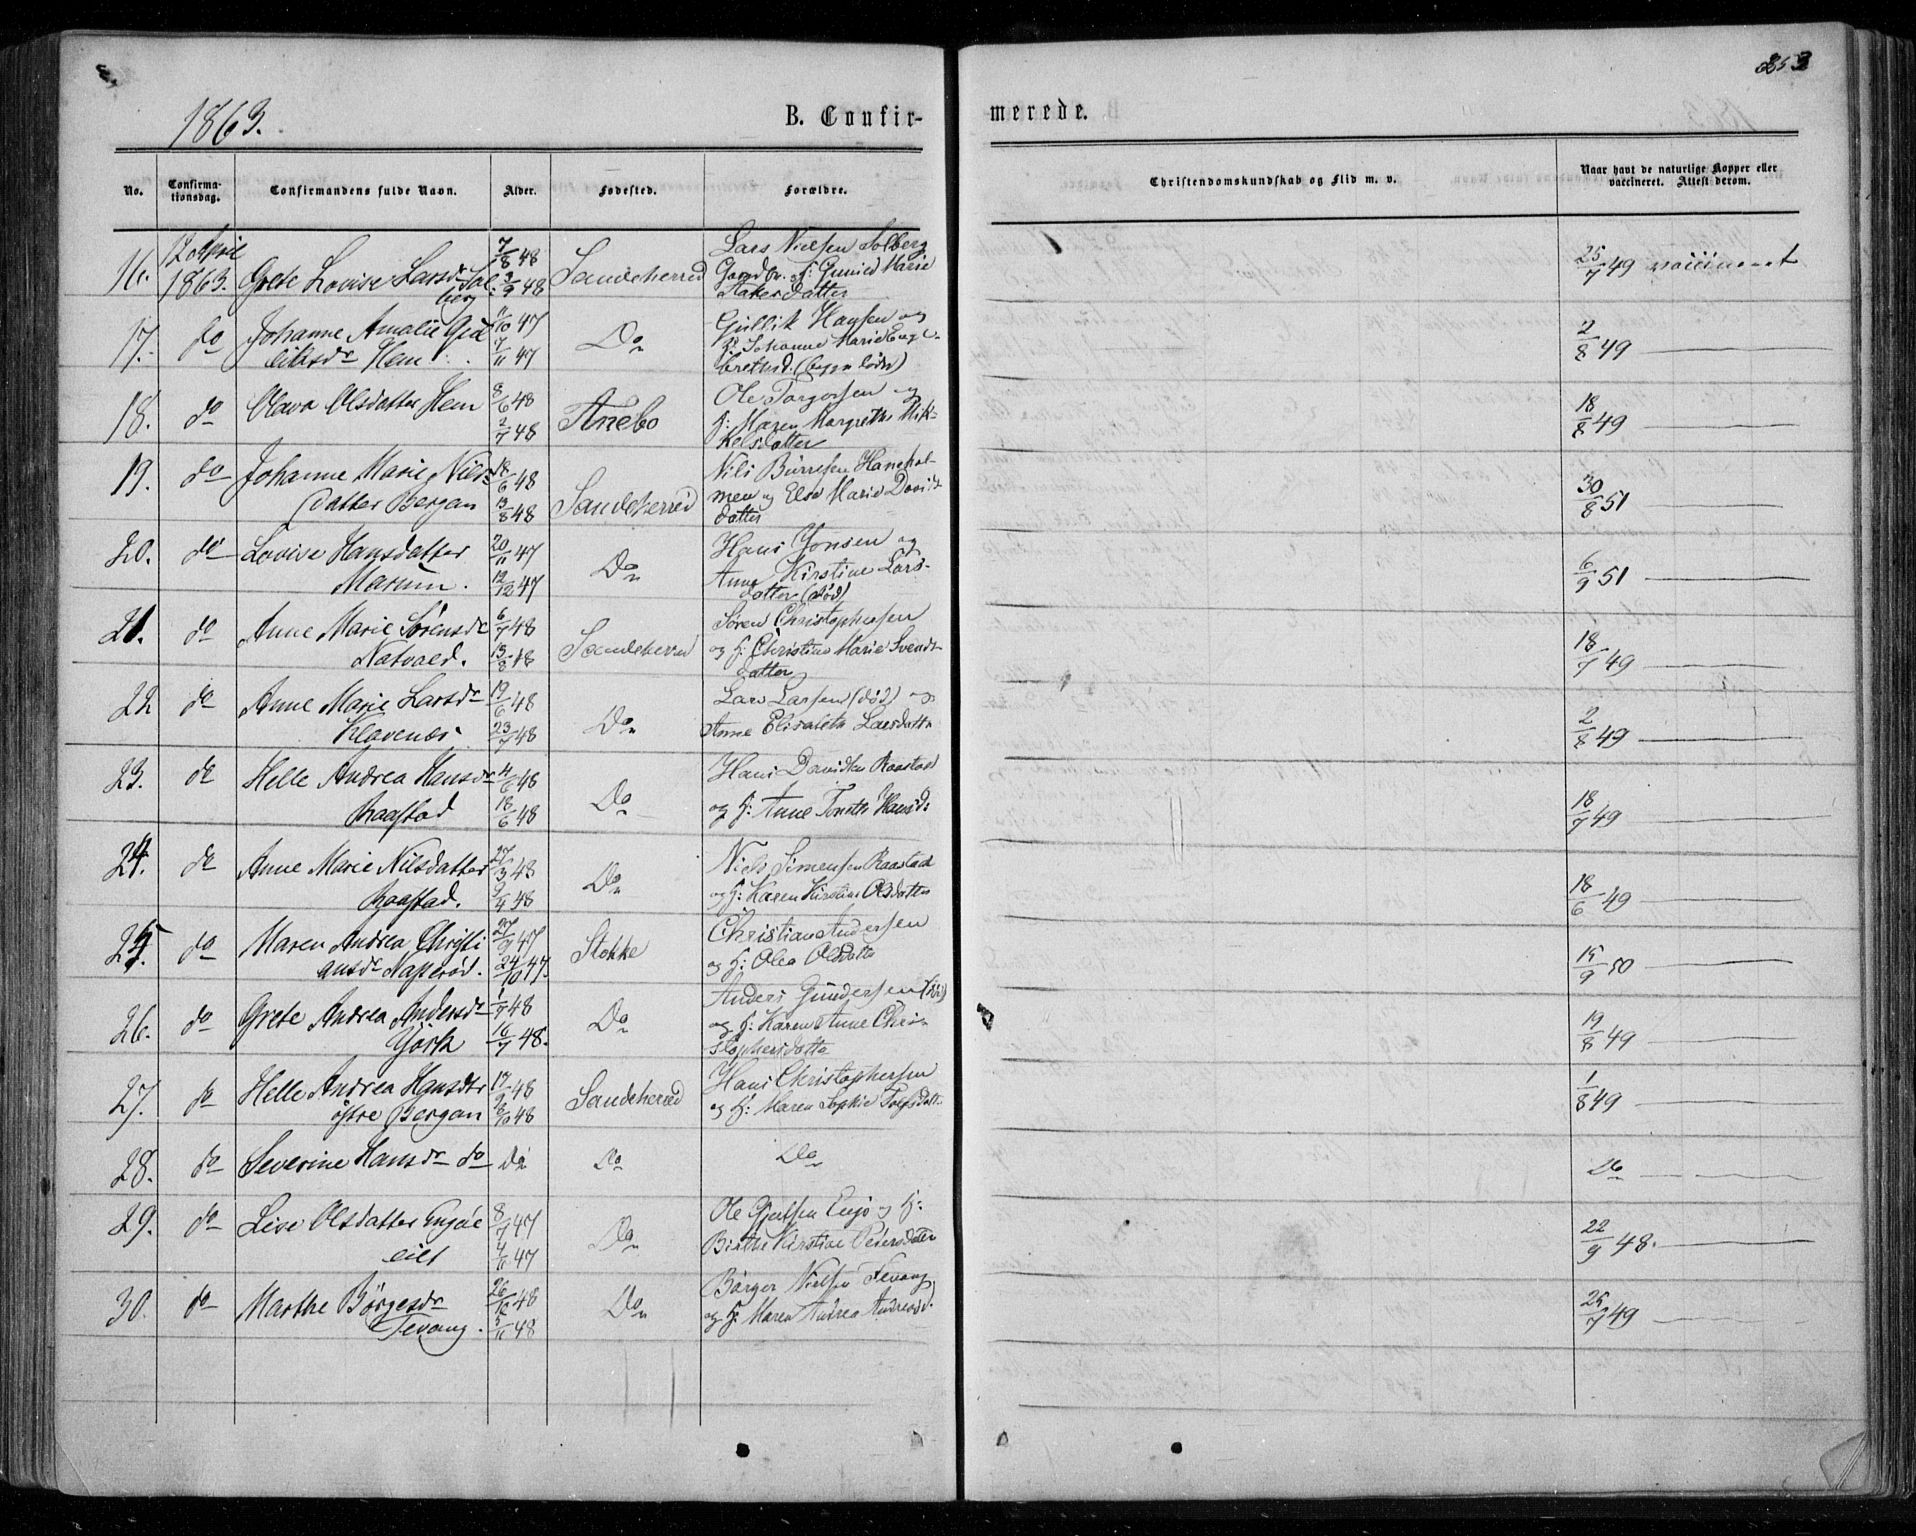 253
1863.
B. Confir-
merede.
No.
Confirma-
tionsdag.
Confirmandens fulde Navn.
Alder.
Fødested.
Forældre.
Christendomskundskab og Flid m. v.
Naar havt de naturlige Kopper eller
vaccineret. Attest derom.
16. 12 April 1863. Grete Lovise Larsdr Sol-
berg
7/8 48
3/9 48
Sandeherred
Lars Nielsen Solberg
Gaardbr. og H: Gunild Marie
datter
25/7 49 vaccineret
17. do Johanne Amalie Gul
liksdr Hem
/10 47
7/11 47
Do
Gullik Hansen og
H: Johanne Marie Enge-
bretsd.
2/8 49
18. do Olava Olsdatter Hem
8/6 48
2/7 48
Anebo
Ole Torgersen og
H: Maren Margrethe Mik-
kelsdatter
18/8 49
19. do Johanne Marie Niels-
datter Bergan
18/6 48
13/8 48
Sandeherred
Nils Børresen Hanehol-
men og Else Marie Davids-
datter
30/8 51
20. do Lovise Hansdatter
Marum.
20/11 47
12/12 47
Do
Hans Jonsen og
Anne Kirstine Lars-
datter (død)
6/9 51
21. do Anne Marie Sørensdr
Natvald.
6/7 48
13/8 48
Sandeherred
Søren Christophersen
og H: Christine Marie Svends-
datter
18/7 49
22 do Anne Marie Larsdr
Klavenæs
19/6 48
23/7 48
Do
Lars Larsen (død) og
Anne Elisabeth Larsdatter
2/8 49
23. do Helle Andrea Hansdr
Raastad
4/6 48
18/6 48
Do
Hans Davidsen Raastad
og H: Anne Hansd:
18/7 49
24. do Anne Marie Nilsdatter
Raastad.
27/3 48
9/4 48
Do
Niels Simensen Raastad
og H: Karen Kirstine Olsdatter
18/6 49
25. do Maren Andrea Christi
ansdr Napserød.
27/9 47
24/10 47.
Stokke
Christian Andersen
og H: Olea Olsdatter
15/9 50
26. do Grete Andrea Andersdr
Gjørk
1/7 48
16/7 48.
Do
Anders Gundersen (død)
og H: Karen Anne Chri-
stophersdatter
19/8 49
27. do Helle Andrea Hansdtr
østre Bergan
17/9 48
8/10 48
Sandeherred
Hans Christophersen
og H: Maren Sophie
1/8 49
28. do Severine Hansdr do
Do
Do
Do
Do
29. do Lise Olsdatter Engøe
eiet
8/7 47
4/ 47
Do
Ole og H:
Birthe Kirstine Pedersdatter
22/9 48.
30. do Marthe Børgesdr
Fevang.
26/10 48
5/11 48
Do
Børger Nielsen Fevang
og H: Maren Andrea Andreasd.
25/7 49